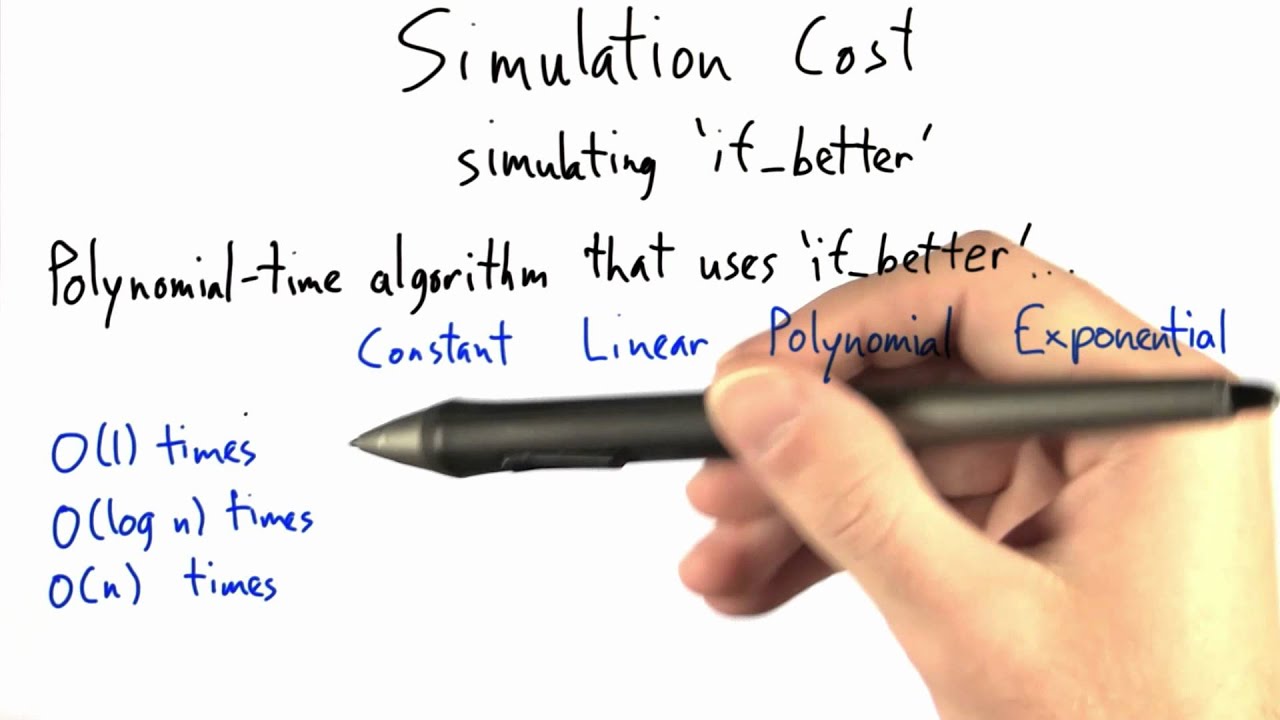 Simulation Cost
simulating 'if_better'
Polynomial-time algorithm that uses 'if_better'...
Constant Linear Polynomial Exponential
O(1) times
O(log n) times
O(n) times